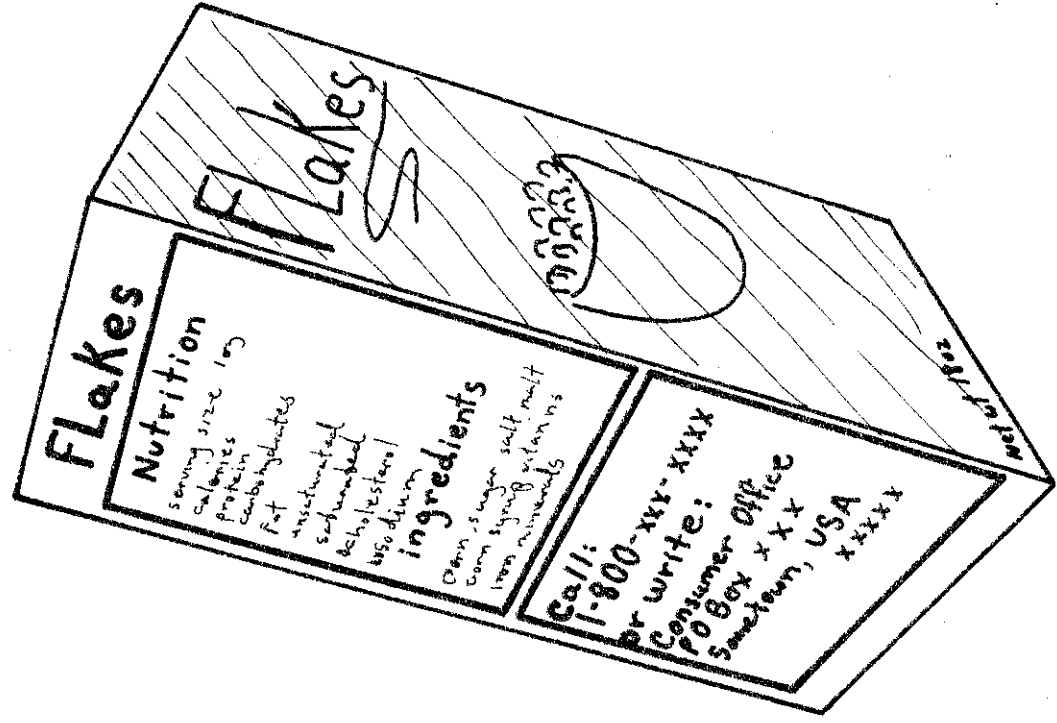 FLaKes
Nutrition
serving size 10g
calories
protein
carbohydrates
Fat
unsaturated
saturated
cholesterol
sodium
ingredients
corn, sugar salt malt
corn syrup vitamins
iron minerals
Call:
1-800-xxx-xxxx
or write:
Consumer Office
PO Box x x x
Sometown, USA
xxxxx
FLaKes
Net wt 18oz